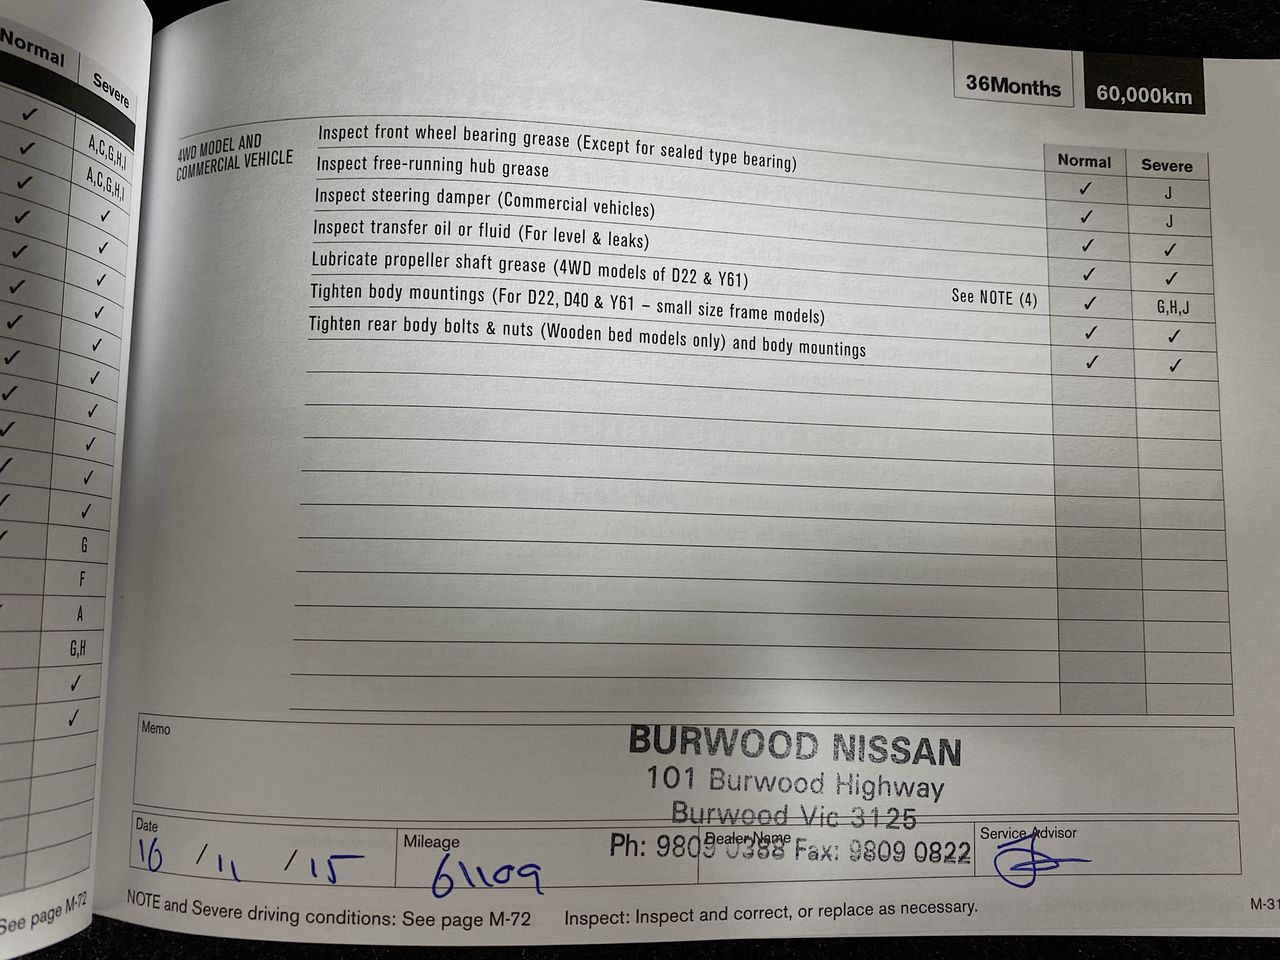 Normal Severe
✓ A,C,G,H,I
✓ A,C,G,H,I
✓ ✓
✓ ✓
✓ ✓
✓ ✓
✓ ✓
✓ ✓
✓ ✓
✓ ✓
✓ ✓
✓ ✓
✓ G
F
A
G,H
✓
✓
See page M-72
36Months 60,000km
Normal Severe
4WD MODEL AND
COMMERCIAL VEHICLE
Inspect front wheel bearing grease (Except for sealed type bearing) ✓ J
Inspect free-running hub grease ✓ J
Inspect steering damper (Commercial vehicles) ✓ ✓
Inspect transfer oil or fluid (For level & leaks) ✓ ✓
Lubricate propeller shaft grease (4WD models of D22 & Y61) See NOTE (4) ✓ G,H,J
Tighten body mountings (For D22, D40 & Y61 – small size frame models) ✓ ✓
Tighten rear body bolts & nuts (Wooden bed models only) and body mountings ✓ ✓
Memo
BURWOOD NISSAN
101 Burwood Highway
Burwood Vic 3125
Ph: 9809 0388 Fax: 9809 0822
Date
16 / 11 / 15
Mileage
61109
Dealer Name
Service Advisor
NOTE and Severe driving conditions: See page M-72 Inspect: Inspect and correct, or replace as necessary.
M-31